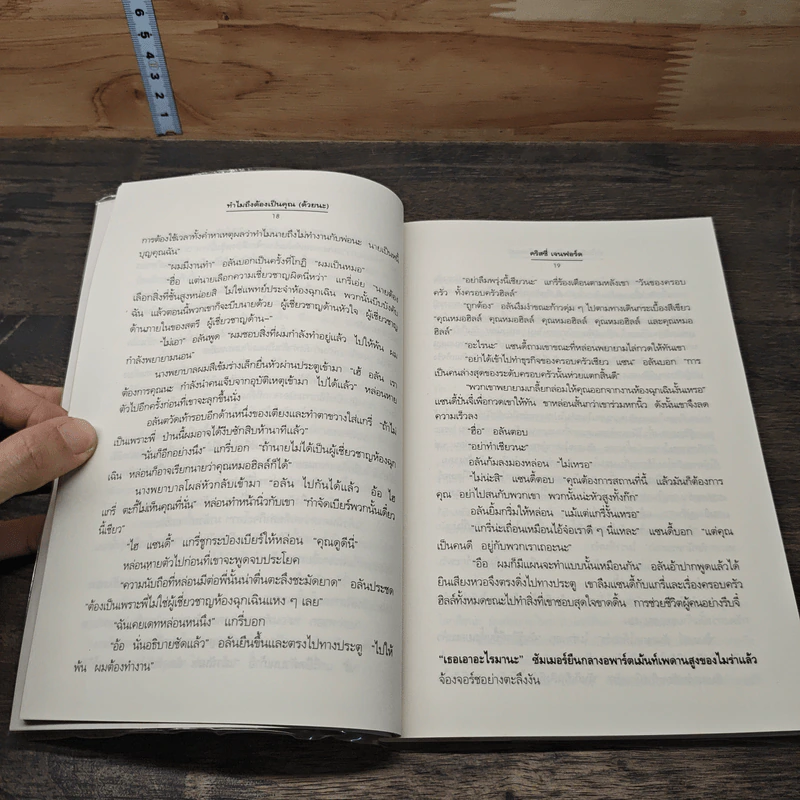 6 5 4 3 2 1
ทำไมถึงต้องเป็นคุณ (ด้วยนะ)
18
การต้องใช้เวลาทั้งค่ำหาเหตุผลว่าทำไมนายถึงไม่ทำงานกับพ่อนะ นายเป็นหนี้
บุญคุณฉัน"
"ผมมีงานทำ" อลันบอกเป็นครั้งที่โกฏิ "ผมเป็นหมอ"
"ฮื่อ แต่นายเลือกความเชี่ยวชาญผิดนี่หว่า" แกรี่เอ่ย "นายต้อง
เลือกสิ่งที่ชั้นสูงหน่อยสิ ไม่ใช่แพทย์ประจำห้องฉุกเฉิน พวกนั้นบีบบังคับ
ฉัน แล้วตอนนี้พวกเขาก็จะบีบนายด้วย ผู้เชี่ยวชาญด้านหัวใจ ผู้เชี่ยวชาญ
ด้านภายในของสตรี ผู้เชี่ยวชาญด้าน–"
"ไม่เอา" อลันพูด "ผมชอบสิ่งที่ผมกำลังทำอยู่แล้ว ไปให้พ้น ผม
กำลังพยายามนอน"
นางพยาบาลผมสีเข้มร่างเล็กยื่นหัวผ่านประตูเข้ามา "เฮ้ อลัน เรา
ต้องการคุณนะ กำลังนำคนเจ็บจากอุบัติเหตุเข้ามา ไปได้แล้ว" หล่อนหาย
ตัวไปอีกครั้งก่อนที่เขาจะลุกขึ้นนั่ง
อลันตวัดเท้ารอบอีกด้านหนึ่งของเตียงและทำตาขวางใส่แกรี่ "ถ้าไม่
เป็นเพราะพี่ ป่านนี้ผมอาจได้งีบซักสิบห้านาทีแล้ว"
"นั่นก็อีกอย่างนึง" แกรี่บอก "ถ้านายไม่ได้เป็นผู้เชี่ยวชาญห้องฉุก
เฉิน หล่อนก็อาจเรียกนายว่าคุณหมอฮิลล์ก็ได้"
นางพยาบาลโผล่หัวกลับเข้ามา "อลัน ไปกันได้แล้ว อ้อ ไฮ
แกรี่ ตะกี้ไม่เห็นคุณที่นั่น" หล่อนทำหน้านิ่วกับเขา "กำจัดเบียร์พวกนั้นเดี๋ยว
นี้เชียว"
"ไฮ แซนดี้" แกรี่ชูกระป๋องเบียร์ให้หล่อน "คุณดูดีนี่"
หล่อนหายตัวไปก่อนที่เขาจะพูดจบประโยค
"ความนับถือที่หล่อนมีต่อพี่นั้นน่าตื่นตะลึงซะมัดยาด" อลันประชด
"ต้องเป็นเพราะพี่ไม่ใช่ผู้เชี่ยวชาญห้องฉุกเฉินแหง ๆ เลย"
"ฉันเคยเดทหล่อนหนนึง" แกรี่บอก
"อ้อ นั่นอธิบายชัดแล้ว" อลันยืนขึ้นและตรงไปทางประตู "ไปให้
พ้น ผมต้องทำงาน"
คริสซี่ เจนฟอร์ด
19
"อย่าลืมพรุ่งนี้เชียวนะ" แกรี่ร้องเตือนตามหลังเขา "วันของครอบ
ครัว ทั้งครอบครัวฮิลล์"
"ถูกต้อง" อลันงึมงำขณะก้าวดุ่ม ๆ ไปตามทางเดินกระเบื้องสีเขียว
"คุณหมอฮิลล์ คุณหมอฮิลล์ คุณหมอฮิลล์ คุณหมอฮิลล์ และคุณหมอ
ฮิลล์"
"อะไรนะ" แซนดี้ถามเขาขณะที่หล่อนพยายามไล่กวดให้ทันเขา
"อย่าได้เข้าไปทำธุรกิจของครอบครัวเชียว แซน" อลันบอก "การ
เป็นคนล่างสุดของระดับครอบครัวนั้นห่วยแตกสิ้นดี"
"พวกเขาพยายามเกลี้ยกล่อมให้คุณออกจากงานห้องฉุกเฉินงั้นเหรอ"
แซนดี้ปั่นจี๋เพื่อกวดเขาให้ทัน ขาหล่อนสั้นกว่าเขาร่วมหกนิ้ว ดังนั้นเขาจึงลด
ความเร็วลง
"ฮื่อ" อลันตอบ
"อย่าทำเชียวนะ"
อลันก้มลงมองหล่อน "ไม่เหรอ"
"ไม่น่ะสิ" แซนดี้ตอบ "คุณต้องการสถานที่นี้ แล้วมันก็ต้องการ
คุณ อย่าไปสนกับพวกเขา พวกนั้นน่ะหัวสูงทั้งก๊ก"
อลันยิ้มกริ่มให้หล่อน "แม้แต่แกรี่งั้นเหรอ"
"แกรี่น่ะเถื่อนเหมือนไอ้จ่อเราดี ๆ นี่แหละ" แซนดี้บอก "แต่คุณ
เป็นคนดี อยู่กับพวกเราเถอะนะ"
"อือ ผมก็มีแผนจะทำแบบนั้นเหมือนกัน" อลันอ้าปากพูดแล้วได้
ยินเสียงหวอจึงตรงดิ่งไปทางประตู เขาลืมแซนดี้กับแกรี่และเรื่องครอบครัว
ฮิลล์ทั้งหมดขณะไปทำสิ่งที่เขาชอบสุดใจขาดดิ้น การช่วยชีวิตผู้คนอย่างรีบจี๋
"เธอเอาอะไรมานะ" ซัมเมอร์ยืนกลางอพาร์ตเม้นท์เพดานสูงของไมร่าแล้ว
จ้องจอร์ชอย่างตะลึงงัน